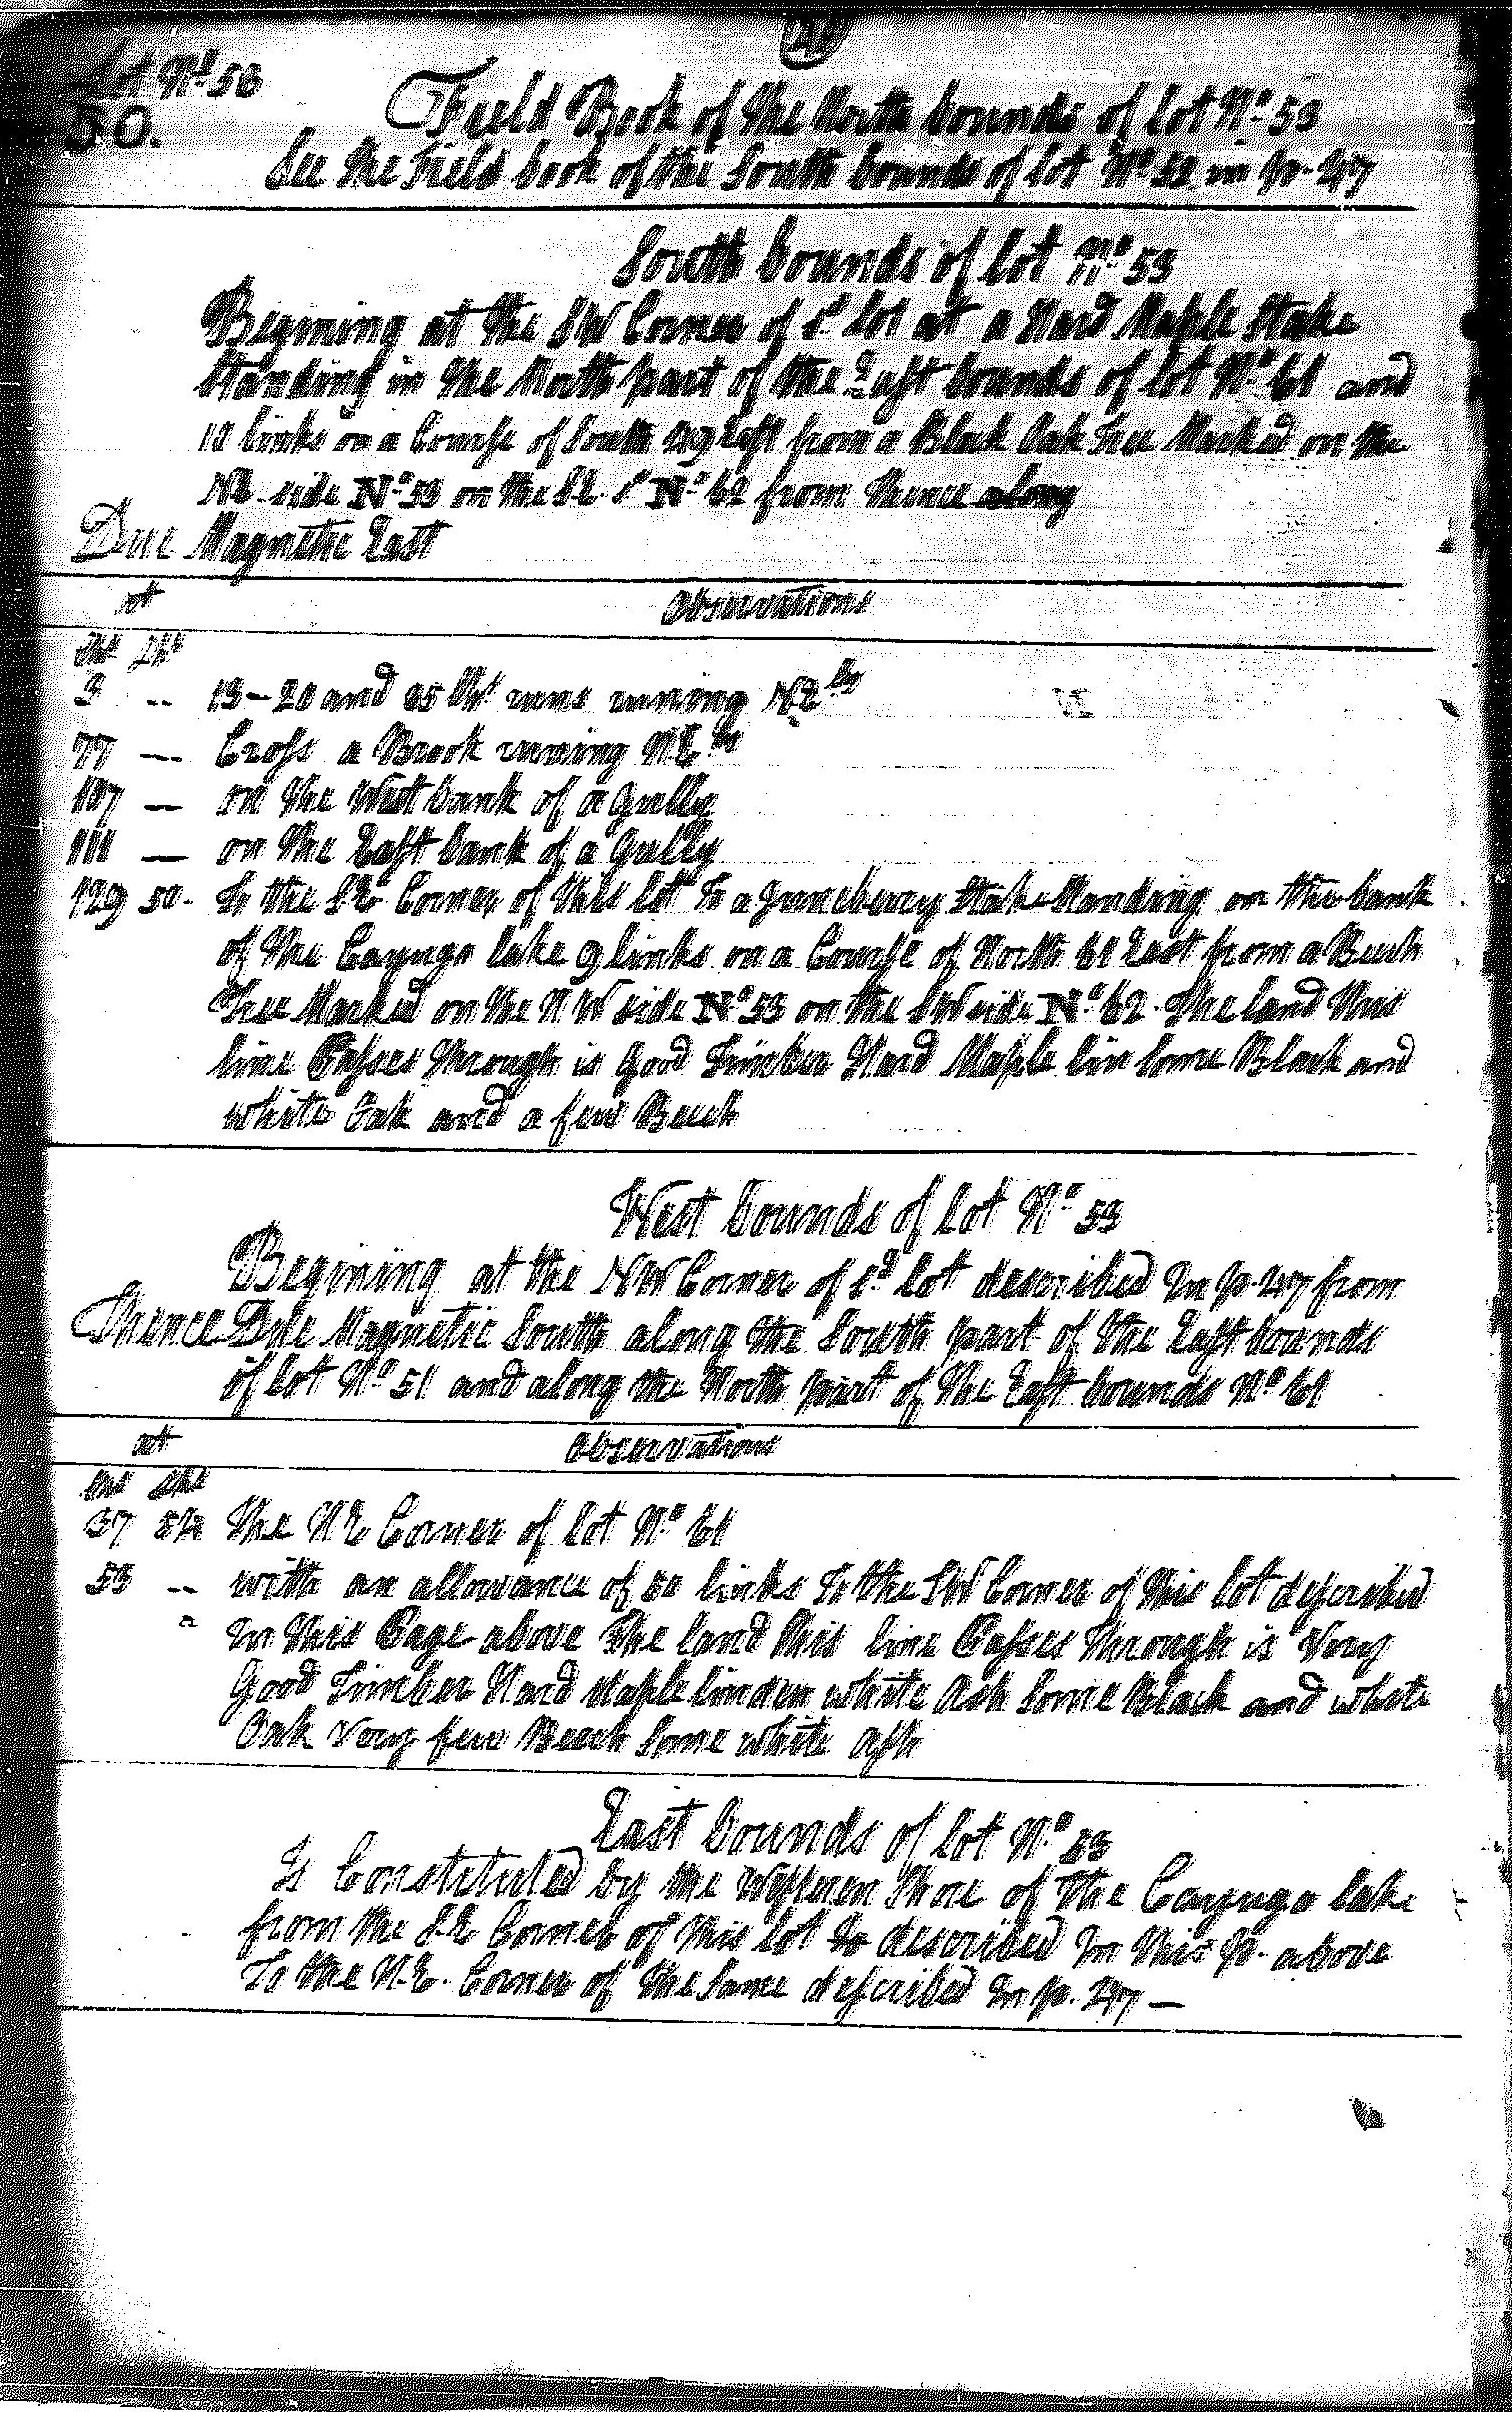 Lot Nº 53
50.
Field Book of the North bounds of lot Nº 53
See the Field book of the South bounds of lot Nº 52 in p. 47
South bounds of lot Nº 53
Begining at the SW Corner of sd lot at a Hard Maple Stake
Standing in the North part of the East bounds of lot Nº 61 and
links on a Course of South East from a Black Oak Tree Marked on the
NE side Nº 53 on the SE Nº 62 from thence along
Due Magnetic East
at Observations
Chs Lks
3 -- 13 - 20 and 25 Chs runs runing
77 -- Cross a Brook runing NEly
107 -- on the West bank of a Gully
111 -- on the East bank of a Gully
129 50. To the SE Corner of this lot To a Juneberry Stake Standing on the bank
of the Cayuga lake 9 links on a Course of North 61 East from a Beech
Tree Marked on the NW side Nº 53 on the SW side Nº 62. The land this
line Passes through is Good Timber Hard Maple lin some Black and
white Oak and a few Beech
West bounds of lot Nº 53
Begining at the NW Corner of sd lot described In p. 47 from
Thence Due Magnetic South along the South part of the East bounds
of lot Nº 51 and along the North part of the East bounds Nº 61
at Observations
Chs Lks
37 the NE Corner of lot Nº 61
53 -- with an allowance of 50 links To the SW Corner of this lot described
In this Page above The land this line Passes through is Very
Good Timber Hard Maple linden white Ash some Black and white
Oak Very few Beech Some white Ash
East bounds of lot Nº 53
Is Constituted by the Western Shore of the Cayuga lake
from the SE Corner of this lot described In this p. above
To the N.E. Corner of the Same described In p. 47 —